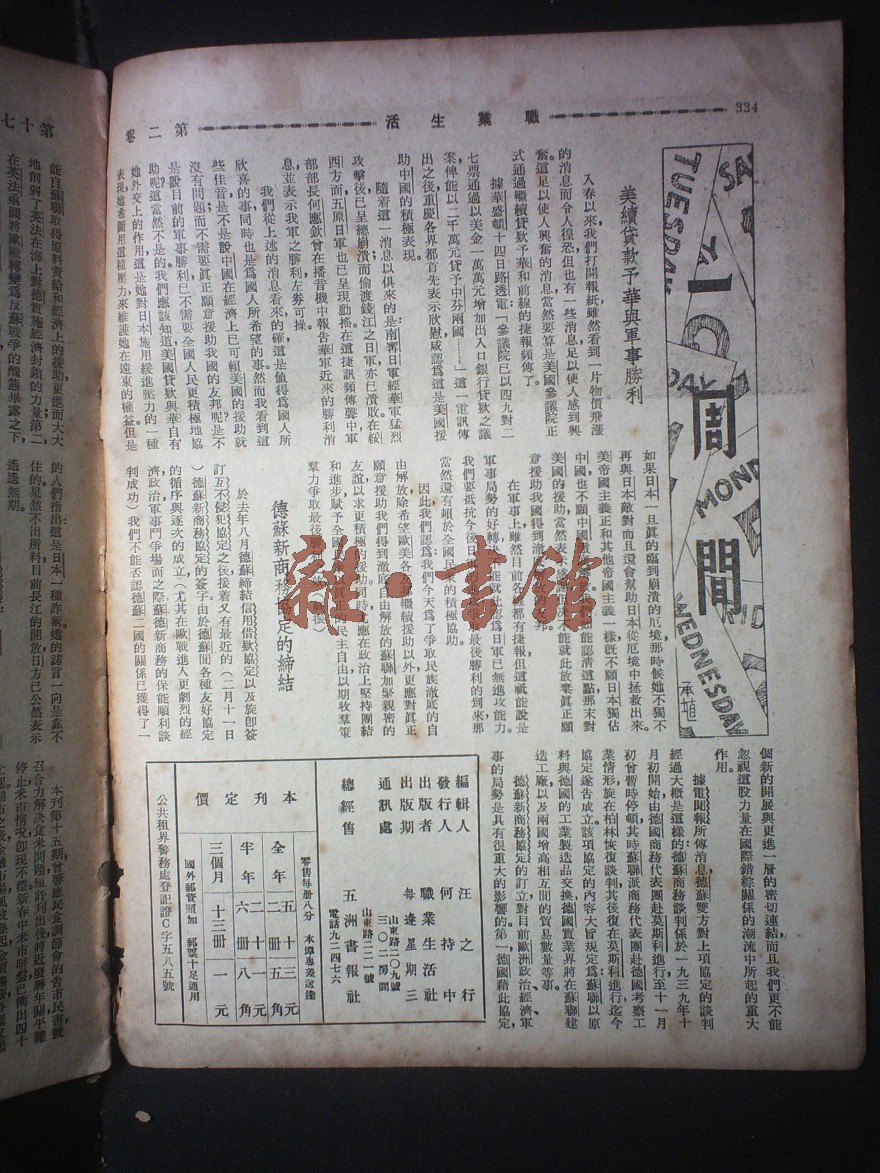 334
職業生活
第二卷
第十七
SA
TUESDAY
DAY
MOND
RID
WEDNESDAY
周間
承植
美續貸款予華與軍事勝利
入春以來我們打開報紙雖然看到一片物價飛漲
的消息而令人徨恐但也有一些消息足以使人感到興
奮這足以使人興奮的消息當然要算是美國參議院正
式通過繼續貸款予華和前線的捷報頻傳了。
據華盛頓十四日路透電：「參議院已以四九對二
七票通過以美金一萬萬元增加出入口銀行貸款之議
案俾能以二千萬元貸予中芬兩國——」這一電訊傳
出之後重慶各界都首先表示欣慰咸認為這是美國援
助中國的積極表現。
隨着這一消息以俱來的是南鄣日軍經華軍猛烈
攻擊後已呈總崩潰而偷渡錢江之日軍亦已潰敗在綏
西方面五原日軍也已呈現動搖在這捷訊頻傳聲中軍
部部長何應欽曾在播音機中報告華軍近來的勝利消
息並表示我軍之勝利左劵可操。
我們從上述的消息看來的確這是值得為國人所
欣喜的事同時也是為國人所希望的事然而我看到這
些佳音是不是說中國在經濟上已可賴美國的援助就
沒有問題而不需要真正願意援助我國的友邦呢是不
是說目前的軍事勝利已不需要全國人民更積極地協
助呢？這當然不是的我們應該知道美國貸款與華自有
她外交上的作用這是她對日本施用緩進壓力的一種
表現她希圖用這種壓力來維護她在遠東的權益但是
如果日本一旦真的臨到崩潰的厄境那時候她不獨不
再與日本敵對而且還會幫助日本從厄境中拯救出來。
美帝國主義正和其他帝國主義一樣旣不願日本獨佔
中國也不願中國
能認清這點那末對
美國的援助當然表示
能就此放棄真正願
意援助我國得到澈底
在軍事上雖然目前各線都有捷報但這祇能說是
軍事局勢的好轉
能就此認為日軍已無進攻能力。
我們要抵抗今後日
最後勝利的到來那
當然還有賴於全國民衆的積極協助。
因此我們認為我們今天為了爭取民族澈底的自
由解放除希望歐美各
都繼續援助以外更應對真正
願意援助我們得到澈底自由解放的蘇聯加緊親密的
友誼以求更積極的援助同時尤應在政治上堅持團結
和進步賦予全國
真正的民主自由以期收羣策
羣力爭取最後勝
德蘇新商務協定的締結
於去年八月德蘇締結信用借款協定以及旋卽簽
訂互不侵犯協定之後接着又有最近的（二月十一日
）德蘇新商務協定的簽字由於德蘇間各種友好協定
的循序與逐次的成立（尤其在歐戰進入更劇烈的經
濟政治軍事鬥爭場面之際蘇德新商務的保能順利談
判成功）我們不能否認德蘇二國的關係已獲得了一
個新的開展與更進一層的密切連結而且我們更不能
忽視這股力量在國際錯綜關係的潮流中所起的重大
作用。
據電聞報所傳消息德蘇雙方對上項協定的談判
經過大概是這樣的：德蘇商務談判係於一九三九年十
月初開始由德國商務代表團赴莫斯科進行至十一月
初曾暫時停頓其時蘇聯派商務代表團赴德國考察工
業情形旋在柏林恢復談判其後復在莫斯科進行迄今
協定遂吿成立。該項協定的內容大旨規定為：蘇聯以原
料與德國的工業製造品交換德國實業界將在蘇聯建
造工廠以及兩國增高相互間的貿易數量等事。
德蘇新商務協定的訂立對目前歐洲政治、經濟、軍
事的局勢是具有很重大的影響的。第一、德國藉此協定，
編輯人 汪之行
發行人 何持中
出版者 職業生活社
出版期 每逢星期三
通訊處 山東路二〇九號三〇二房間
總經售 五洲書報社
山東路二二一號
電話九二四七六
本刊定價
零售每册八分 本埠專差送達
全年 五十三册 二元五角
半年 二十六册 一元八角
三個月 十三册 一元
國外郵資照加 郵票十足通用
公共租界警務處登記證C字五八五號
能自蘇聯取得原料資給和經濟上的援助更進而大大
地削弱了英法在海上對德實施經濟封鎖的力量第二
在英法亟圖將歐戰轉變為反蘇戰爭的醜態暴露之下
的人們指出這是日本一種詐術她的諾言一向是靠不
住的果然不出所料目前長江的開放日方已公然表示
遙遙無期。
本刊第十五期曾響應民食調節會的吿市民書號
召合力解決食米問題短評刋出後將近廢曆年關平糶
停止米市情况卽現不穩新春中米市暗盤已衝出四十
雜·書館